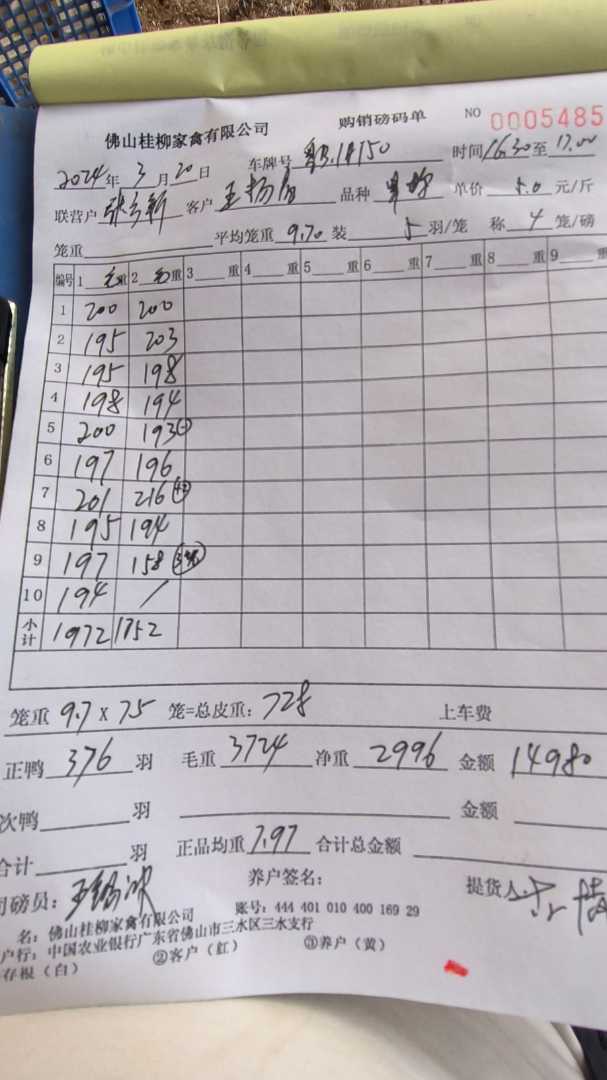 佛山桂柳家禽有限公司 购销磅码单 NO 0005485
2024年3月20日 车牌号 时间16:30至17:00
联营户 客户 王杨 品种 单价 5.0 元/斤
笼重 平均笼重 9.70 装 5 羽/笼 称 4 笼/磅
编号 1 毛重 2 毛重 3 重 4 重 5 重 6 重 7 重 8 重 9
1 200 200
2 195 203
3 195 198
4 198 194
5 200 193
6 197 196
7 201 216
8 195 194
9 197 158
10 194 /
小计 1972 1752
笼重 9.7 x 75 笼=总皮重: 728 上车费
正鸭 376 羽 毛重 3724 净重 2996 金额 14980
次鸭 羽 金额
合计 羽 正品均重 7.97 合计总金额
司磅员: 养户签名: 提货人
名: 佛山桂柳家禽有限公司 账号: 444 401 010 400 169 29
户行: 中国农业银行广东省佛山市三水区三水支行
存根(白) ②客户(红) ③养户(黄)